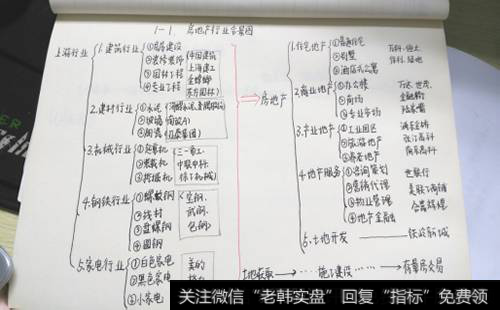 1-1. 房地产行业全景图
上游行业
1.建筑行业
①房屋建设
②装修装饰
③园林工程
④专业工程
中国建筑
上海建工
金螳螂
东方园林
2.建材行业
①水泥(海螺水泥
②玻璃
③陶瓷
3.机械行业
①挖掘机
②装载机
③
三一重工
中联重科
4.钢铁行业
①螺纹钢
②线材
③盘螺钢
④圆钢
宝钢、
武钢、
包钢
5.家电行业
①白色家电
②黑色家电
③小家电
美的
格力
房地产
1.住宅地产
①普通住宅
②别墅
③酒店式公寓
万科、恒大
保利、绿地
2.商业地产
①办公楼
②商场
③专业市场
万达、世茂、
金融街
陆家嘴
3.产业地产
①工业园区
②旅游地产
③养老地产
浦东金桥
张江高科
南京高科
4.地产服务
①咨询策划
②营销代理
③物业管理
④地产金融
世联行
5.土地开发
土地获取
施工建设
存量房交易
关注微信“老韩实盘”回复“指标”免费领